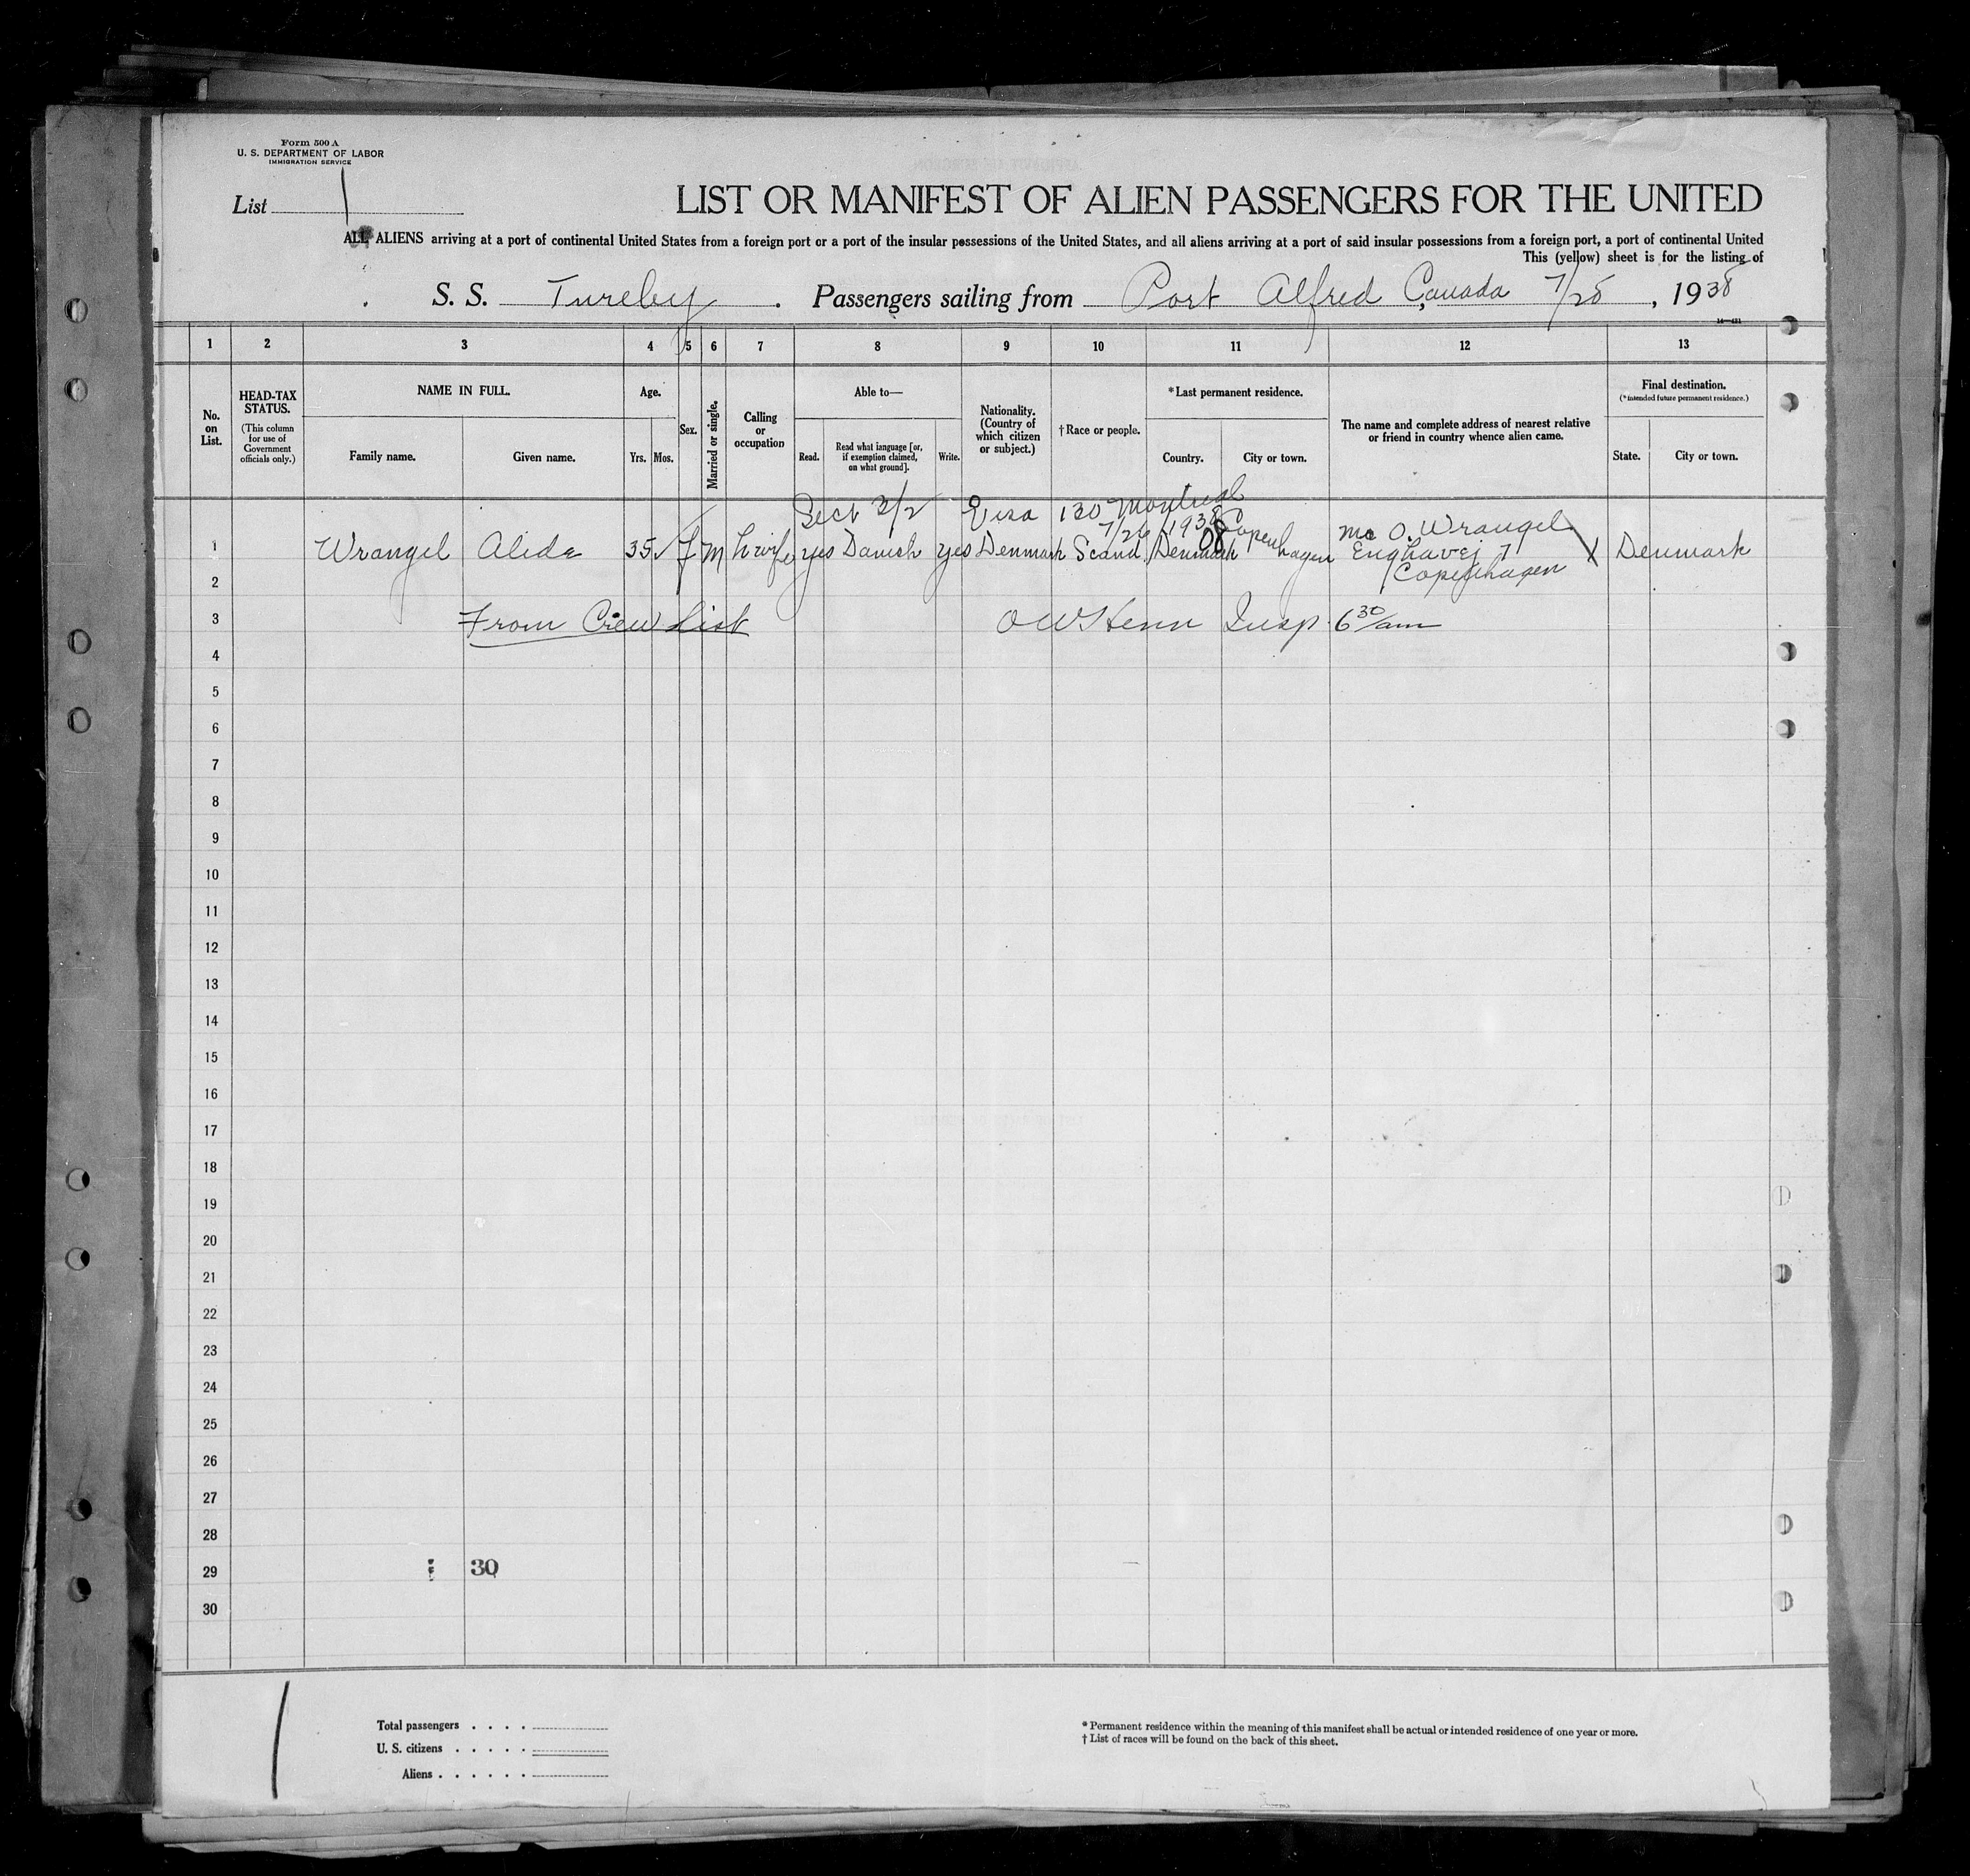 Form 500 A
U. S. DEPARTMENT OF LABOR
IMMIGRATION SERVICE
List 1
LIST OR MANIFEST OF ALIEN PASSENGERS FOR THE UNITED
ALL ALIENS arriving at a port of continental United States from a foreign port or a port of the insular possessions of the United States, and all aliens arriving at a port of said insular possessions from a foreign port, a port of continental United
This (yellow) sheet is for the listing of
S. S. Tureby . Passengers sailing from Port Alfred, Canada 7/28, 1938
1 2 3 4 5 6 7 8 9 10 11 12 13
No. on List.
HEAD-TAX STATUS.
(This column for use of Government officials only.)
NAME IN FULL.
Family name. Given name.
Age.
Yrs. Mos.
Sex.
Married or single.
Calling or occupation
Able to—
Read. Read what language [or, if exemption claimed, on what ground]. Write.
Nationality. (Country of which citizen or subject.)
† Race or people.
* Last permanent residence.
Country. City or town.
The name and complete address of nearest relative or friend in country whence alien came.
Final destination.
(* Intended future permanent residence.)
State. City or town.
Sect 3/2 Visa 130 Montreal
7/26/1938
1 Wrangel Alida 35 ✓ f m h wife yes Danish yes Denmark Scand. Denmark 08 Copenhagen Mr O. Wrangel Enghavej 7 Copenhagen Denmark
2
3 From Crew List O W Henn Insp. 6 30/am
4
5
6
7
8
9
10
11
12
13
14
15
16
17
18
19
20
21
22
23
24
25
26
27
28
29 30
30
1
Total passengers . . . .
U. S. citizens . . . . .
Aliens . . . . . .
* Permanent residence within the meaning of this manifest shall be actual or intended residence of one year or more.
† List of races will be found on the back of this sheet.